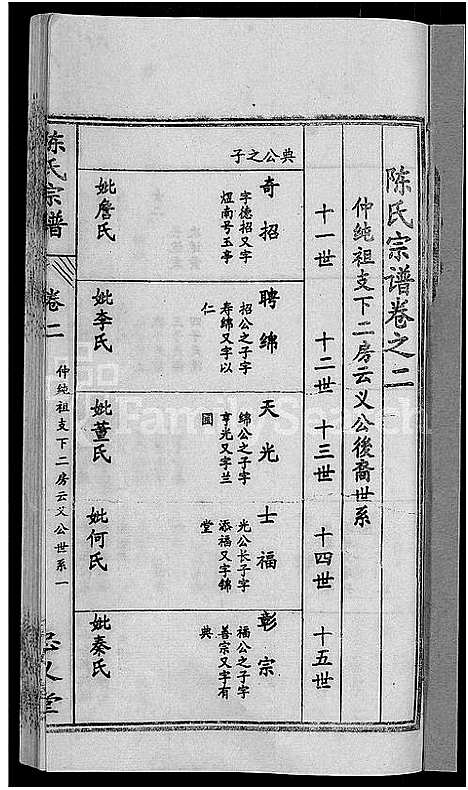 陈氏宗谱卷之二
仲纯祖支下二房云义公後裔世系
十一世
十二世
十三世
十四世
十五世
典公之子
奇招
字德招又字
煴南号玉亭
妣詹氏
聘绵
招公之子字
寿绵又字以
仁
妣李氏
天光
绵公之子字
亨光又字兰
圃
妣董氏
士福
光公长子字
添福又字锦
堂
妣何氏
彰宗
福公之子字
善宗又字有
典
妣秦氏
陈氏宗谱
卷二
仲纯祖支下二房云义公世系一
忠义堂
FamilySearch